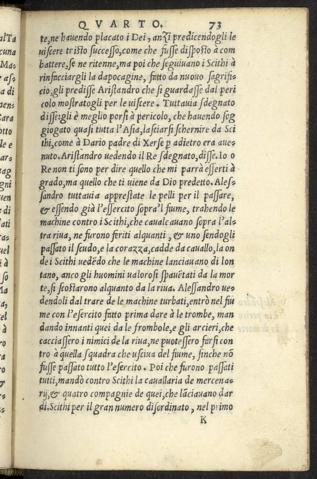 QVARTO. 73
te, ne hauendo placato i Dei, anzi predicendogli le
uiscere tristo successo, come che fusse disposto à com
battere, se ne ritenne, ma poi che seguiuano i Scithi à
rinfacciargli la dapocagine, fatto da nuouo sagrifi-
cio, gli predisse Aristandro che si guardasse dal peri
colo mostratogli per le uiscere. Tuttauia sdegnato
disse: gli è meglio porsi à pericolo, che hauendo sog
giogato quasi tutta l'Asia, lasciarsi schernire da Sci
thi, come à Dario padre di Xerse p adietro era aue-
nuto. Aristandro uedendo il Re sdegnato, disse. Io o
Re non ti sono per dire quello che mi parrà esserti à
grado, ma quello che ti uiene da Dio predetto. Ales-
sandro tuttauia apprestate le pelli per il passare,
& essendo già l'essercito sopra'l fiume, trahendo le
machine contro i Scithi, che caualcauano sopra l'al-
tra riua, ne furono feriti alquanti, & uno sendogli
passato il scudo, e la corazza, cadde da cauallo, la on
de i Scithi uedēdo che le machine lanciauano di lon
tano, anco gli huomini ualorosi spauētati da la mor
te, si scostarono alquanto da la riua. Alessandro ue
dendoli dal trare de le machine turbati, entrò nel fiu
me con l'esercito fatto prima dare à le trombe, man
dando innanti quei da le frombole, e gli arcieri, che
cacciassero i nimici de la riua, ne potessero farsi con
tro à quella squadra che usciua del fiume, finche nō
fusse passato tutto l'esercito. Poi che furono passati
tutti, mandò contro Scithi la cauallaria de mercena-
rij, & quatro compagnie de quei, che lāciauano dar
di. Scithi per il gran numero disordinato, nel primo
K